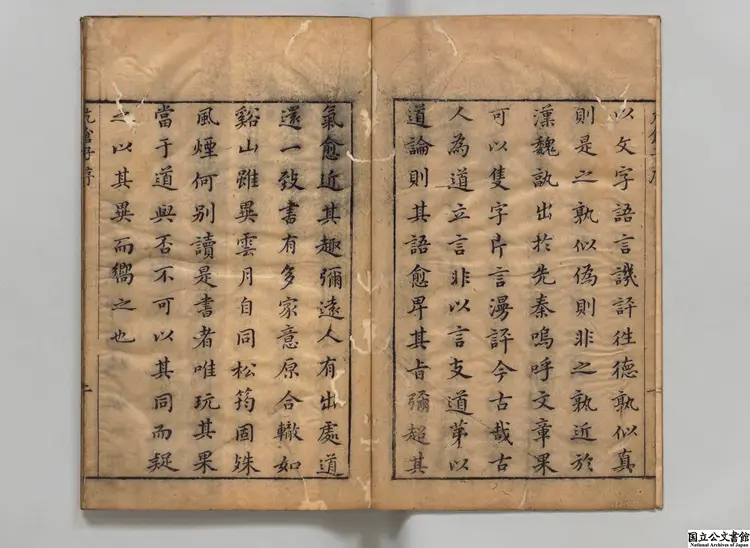 以文字語言譏評徃德孰似真
則是之孰似偽則非之孰近於
漢魏孰出於先秦嗚呼文章果
可以隻字片言漫評今古哉古
人為道立言非以言支道苐以
道論則其語愈卑其旨彌超其
氣愈近其趣彌遠人有出處道
還一致書有多家意原合轍如
谿山雖異雲月自同松筠固殊
風煙何別讀是書者唯玩其果
當于道與否不可以其同而疑
之以其異而嚮之也
亢倉子序
二
国立公文書館
National Archives of Japan